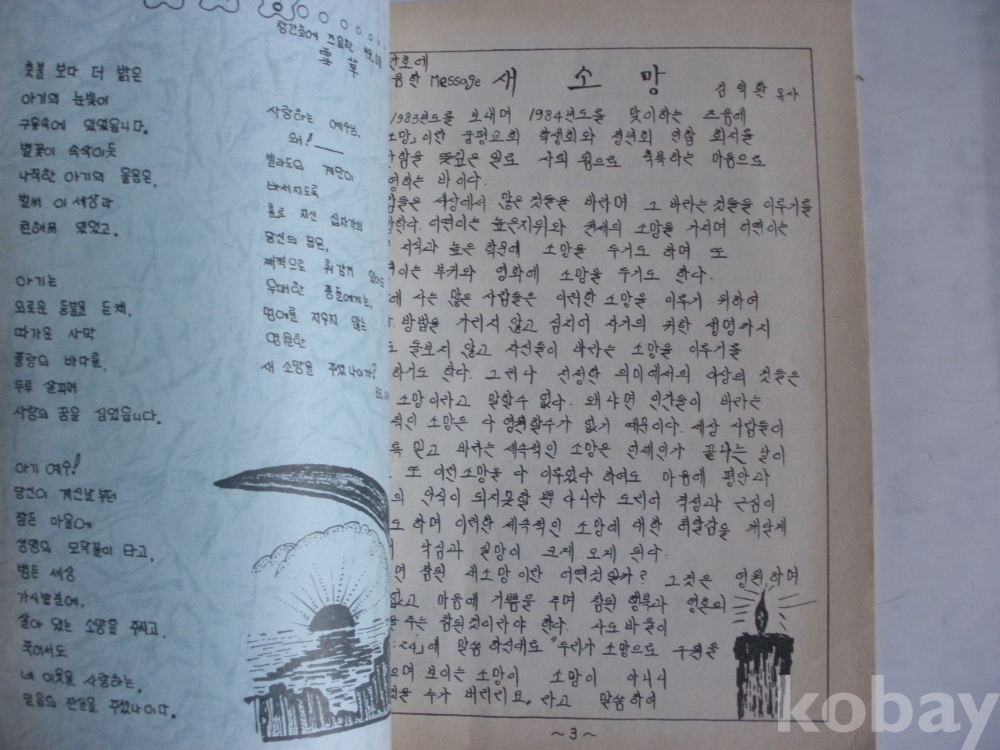 창간호에 즈음한 祝詩
雲草
촛불 보다 더 밝은
아기의 눈빛이
구유속에 있었읍니다.
별꽃이 속삭이듯
나직한 아기의 울음은,
벌써 이 세상과
친해져 있었고.
아기는
외로운 등불을 든채,
따가운 사막
풍랑의 바다를,
두루 살피며
사랑의 꿈을 심었읍니다.
아기 예수!
당신이 계신날 부터
잠든 마을에
생명의 모닥불이 타고,
병든 세상
가시밭길에,
살아 있는 소망을 주시고.
죽어서도
네 이웃을 사랑하는,
믿음의 진실을 주셨나이다.
사랑하는 예수님.
왜!
빌라도의 계단이
바서지도록
홀로 지신 십자가의
당신의 몸은,
채찍으로 휘감겨
우매한 종들에게는,
멍에를 지우지 않는
영원한
새 소망을 주셨나이까?
간호에
음한 Message 새 소망
김혁환 목사
1983년도를 보내며 1984년도를 맞이하는 즈음에
소망」이란 궁평교회 학생회와 청년회 연합 회지를
사람을 뜻깊은 일로 사의 뜀으로 축복하는 마음으로
영하는 바이다.
람들은 세상에서 많은 것들을 바라며 그 바라는 것들을 이루기를
망한다. 어떤이는 높은지위와 권세의 소망을 가지며 어떤이는
지식과 높은 학문에 소망을 두기도 하며 또
떤이는 부귀와 영화에 소망을 두기도 한다.
에 사는 많은 사람들은 이러한 소망을 이루기 위하여
방법을 가리지 않고 심지어 자기의 귀한 생명까지
도 돌보지 않고 자신들이 바라는 소망을 이루기를
하기도 한다. 그러나 진정한 의미에서의 이상의 것들은
소망이라고 말할수 없다. 왜냐면 인간들이 바라는
적인 소망은 다 영원할수가 없기 때문이다. 세상 사람들이
록 믿고 바라는 세속적인 소망은 언제인가 끝나는 날이
또 이런소망을 다 이루었다 하여도 마음에 평안과
의 안식이 되지못할 뿐 아니라 도리어 걱정과 근심이
도 하며 이러한 세속적인 소망에 대한 허탈감을 깨닫게
낙심과 실망이 크게 오게 된다.
면 참된 새소망이란 어떤것일까? 그것은 영원하며
없고 마음에 기쁨을 주며 참된 행복과 영혼의
을 주는 참된것이라야 한다. 사도바울이
:24」에 말씀 하신대로 "우리가 소망으로 구원을
으며 보이는 소망이 소망이 아니니
것을 누가 바라리요, 라고 말씀하여
~3~
kobay